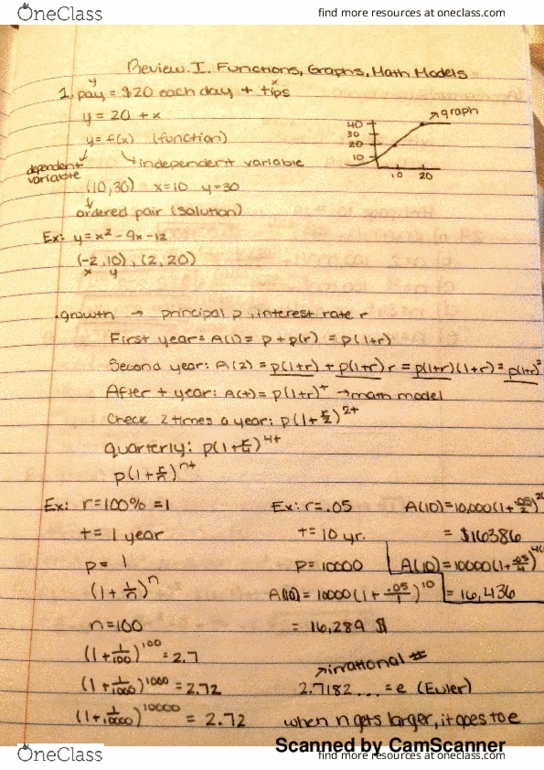 OneClass
find more resources at oneclass.com
Review I. Functions, Graphs, Math Models
y x
1. pay = $20 each day + tips
y = 20 + x
y = f(x) (function)
dependent variable
independent variable
(10,30) x=10 y=30
ordered pair (solution)
40
30
20
10
10 20
graph
Ex: y = x² - 9x - 12
(-2,10), (2,20)
x y
growth → principal p, interest rate r
First year = A(1) = p + p(r) = p(1+r)
Second year: A(2) = p(1+r) + p(1+r)r = p(1+r)(1+r) = p(1+r)²
After t year: A(t) = p(1+r)^t → math model
Check 2 times a year: p(1+r/2)^2t
quarterly: p(1+r/4)^4t
p(1+r/n)^nt
Ex: r = 100% = 1
t = 1 year
p = 1
(1+1/n)^n
n = 100
(1+1/100)^100 = 2.7
(1+1/1000)^1000 = 2.72
(1+1/10000)^10000 = 2.72
Ex: r = .05
t = 10 yr.
p = 10000
A(10) = 10000(1+.05/1)^10
= 16,289 $
A(10) = 10,000(1+.05/2)
= $16386
A(10) = 10000(1+.05/4)
= 16,436
irrational #
2.7182... = e (Euler)
when n gets larger, it goes to e
Scanned by CamScanner
OneClass
find more resources at oneclass.com